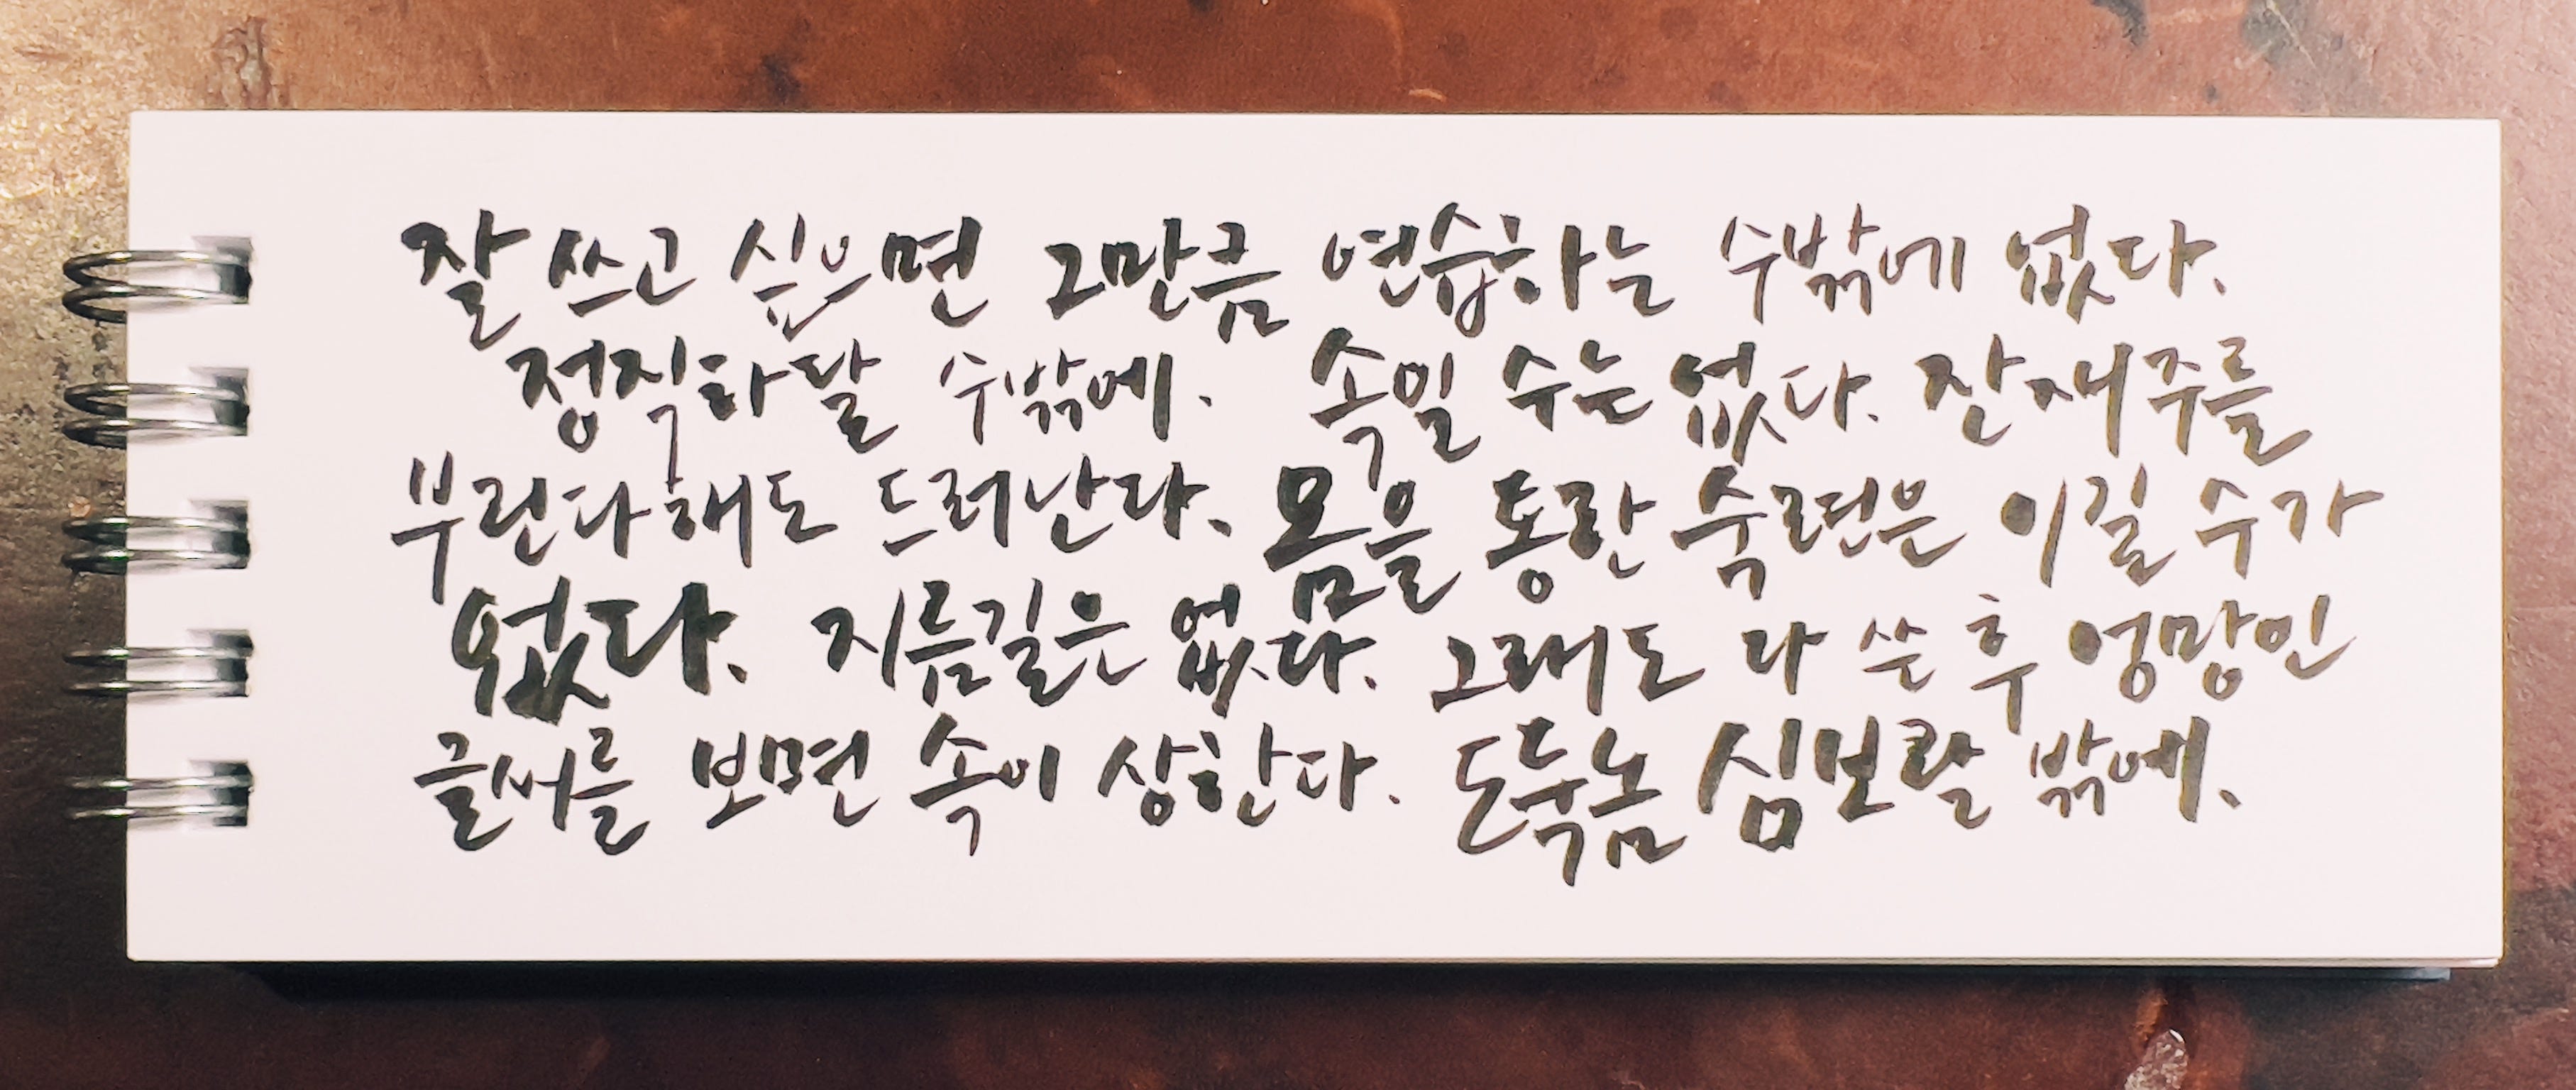 잘 쓰고 싶으면 그만큼 연습하는 수밖에 없다.
정직하달 수밖에. 속일 수는 없다. 잔재주를
부린다 해도 드러난다. 몸을 통한 숙련은 이길 수가
없다. 지름길은 없다. 그래도 다 쓴 후 엉망인
글씨를 보면 속이 상한다. 도둑놈 심보랄 밖에.